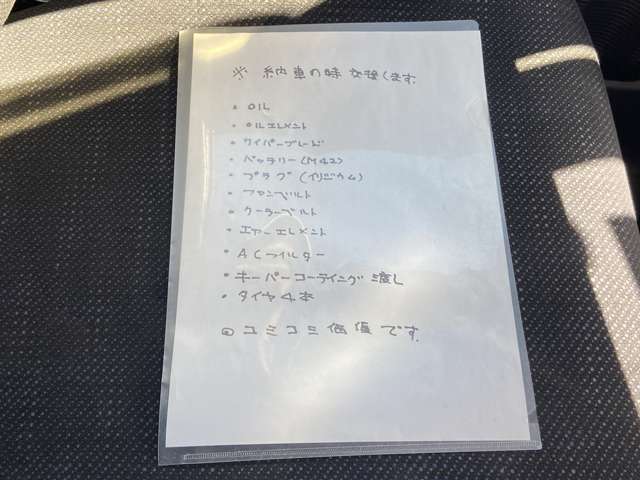 ※ 納車の時交換します.
• OIL
• OILエレメント
• ワイパーブレード
• バッテリー(M42)
• プラグ(イリジウム)
• ファンベルト
• クーラーベルト
• エアーエレメント
• ACフィルター
• キーパーコーティング渡し
• タイヤ4本
◎ コミコミ価格です.